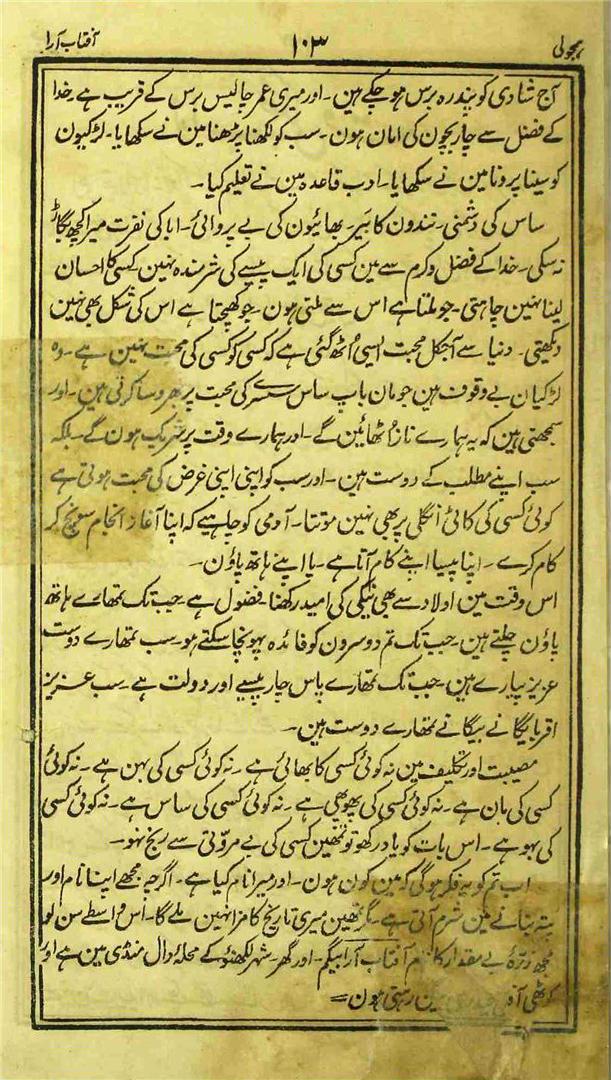 ہمجولی ۱۰۳ آفتاب آرا
آج شادی کو پندرہ برس ہو چکے ہین۔ اور میری عمر چالیس برس کے قریب ہے۔ خدا
کے فضل سے چار بچون کی امان ہون۔ سب کو لکھنا پڑھنا مین نے سکھایا۔ لڑکیون
کو سینا پرونا مین نے سکھایا۔ ادب قاعدہ مین نے تعلیم کیا۔
ساس کی دشمنی۔ نندون کا بَیر۔ بھائیون کی بے پروائی۔ ابا کی نفرت میرا کچھ بگاڑ
نہ سکی۔ خدا کے فضل وکرم سے مین کسی کی ایک پیسے کی شرمندہ نہین کسی کا احسان
لینا نہین چاہتی۔ جو ملتا ہے اس سے ملتی ہون۔ جو کھچتا ہے اس کی شکل بھی نہین
دیکھتی۔ دنیا سے آجکل محبت ایسی اُٹھ گئی ہے کہ کسی کو کسی کی محبت نہین ہے۔ وہ
لڑکیان بے وقوف ہین جو مان باپ ساس سسرے کی محبت پر بھروسا کرتی ہین۔ اور
سمجھتی ہین کہ یہ ہمارے ناز اُٹھائین گے۔ اور ہمارے وقت پر شریک ہون گے۔ بلکہ
سب اپنے مطلب کے دوست ہین۔ اور سب کو اپنی اپنی غرض کی محبت ہوتی ہے
کوئی کسی کی کاٹی اُنگلی پر بھی نہین موتتا۔ آدمی کو چاہیے کہ اپنا آغاز انجام سونچ کر
کام کرے۔ اپنا پیسا اپنے کام آتا ہے۔ یا اپنے ہاتھ پاؤن۔
اس وقت مین اولاد سے بھی نیکی کی امید رکھنا فضول ہے۔ جب تک تمھارے ہاتھ
پاؤن چلتے ہین۔ جب تک تم دوسرون کو فائدہ پہونچا سکتے ہو۔ سب تمھارے دوست
عزیز پیارے ہین۔ جب تک تمھارے پاس چار پیسے اور دولت ہے۔ سب عزیز
اقربا یگانے بیگانے تمھارے دوست ہین۔
مصیبت اور تکلیف مین نہ کوئی کسی کا بھائی ہے۔ نہ کوئی کسی کی بہن ہے۔ نہ کوئی
کسی کی مان ہے۔ نہ کوئی کسی کی پھوپھی ہے۔ نہ کوئی کسی کی ساس ہے۔ نہ کوئی کسی
کی بہو ہے۔ اس بات کو یاد رکھو تو تمھین کسی کی بے مروّتی سے رنج نہو۔
اب تم کو یہ فکر ہوگی کہ مین کون ہون۔ اور میرا نام کیا ہے۔ اگرچہ مجھے اپنا نام اور
پتہ بتانے مین شرم آتی ہے۔ مگر تمھین میری تاریخ کا مزا نہین ملے گا۔ اس واسطے سن لو۔
مجھ ذرّہ بے مقدار کا نام آفتاب آرا بیگم۔ اور گھر۔ شہر لکھنؤ کے محلہ دال منڈی مین ہے اور
کوٹھی مین رہتی ہون =